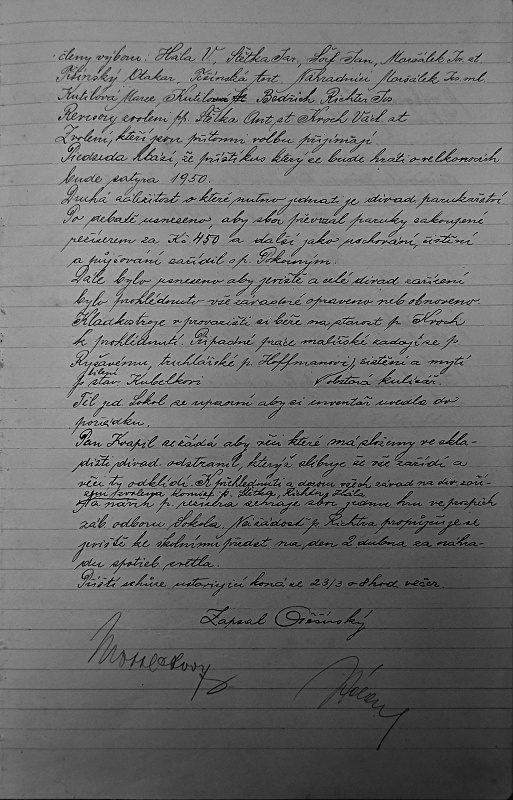 členy výboru: Hála V., Štětka Jar, Šorf Jan, Maršálek Js. st.
Těšínský Otakar, Těšínská
Náhradníci Maršálek Js. ml.
Kutilová Marce, Kutilová Bedřich Richter Jos
Revisory zvoleni pp. Štětka Ant. st Kroch Václ. st
Zvolení, kteří jsou přítomni volbu přijímají.
Předseda hlásí, že příští kus který se bude hráti o velkonocích
bude satyra 1950.
Druhá záležitost o které nutno jednat je divad. parukářství
Po debatě usneseno, aby sbor převzal paruky zakoupené
režiserem za Kč 450 a další jako uschování, čistění
a půjčování zařídil s p. Pokorným.
Dále bylo usneseno aby jeviště a celé divad zařízení
bylo prohlédnuto vše závadné opraveno neb obnoveno.
Kladkostroje v provazišti si béře na starost p. Kroch
k prohlédnutí. Případné práce malířské zadají se p
Ryšavému, truhlářské p. Hoffmanovi, čistění a mytí
bílení
p stav. Kubelkovi
obstará kulisář.
Těl. jed Sokol se upozorní aby si inventář uvedla do
pořádku.
Pan Kvapil se žádá aby věci které má složeny ve skla-
dišti divad. odstranil, kterýž slibuje že vše zařídí a
věci ty odklidí. K přehlédnutí a dozoru všech závad na div. zaří-
zení zvolena komise p. Štětka, Richter, Hála
Na návrh p. režiséra sehraje sbor jednu hru ve prospěch
záb. odboru Sokola. Na žádost p. Richtra propůjčuje se
jeviště ke školnímu předst. na den 2 dubna za náhra-
du spotřeb světla.
Příští schůze ustavující koná se 23/3 o 8 hod večer
Zapsal OTěšínský